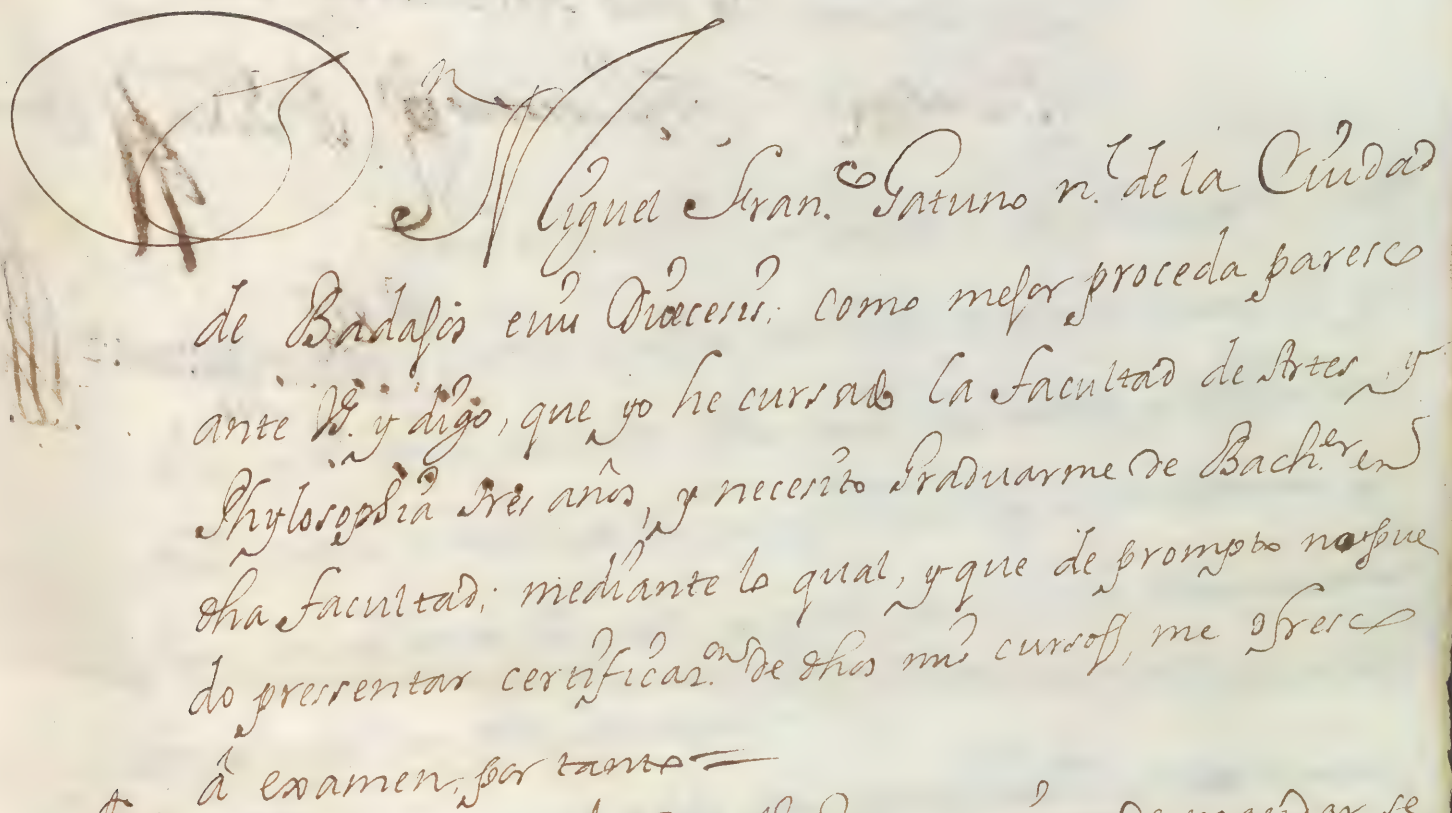 Miguel Fran.co Gatuno n.l de la Ciudad
de Badajos en su Diœcesis; como mejor proceda paresco
ante V.S. y digo, que yo he cursado la facultad de Artes, y
Phylosophia tres años, y necesito Graduarme de Bach.er en
dha facultad; mediante lo qual, y que de prompto no pue
do pressentar certificaz.on de dhos mis cursos, me ofresco
â examen, por tanto =
mandar se